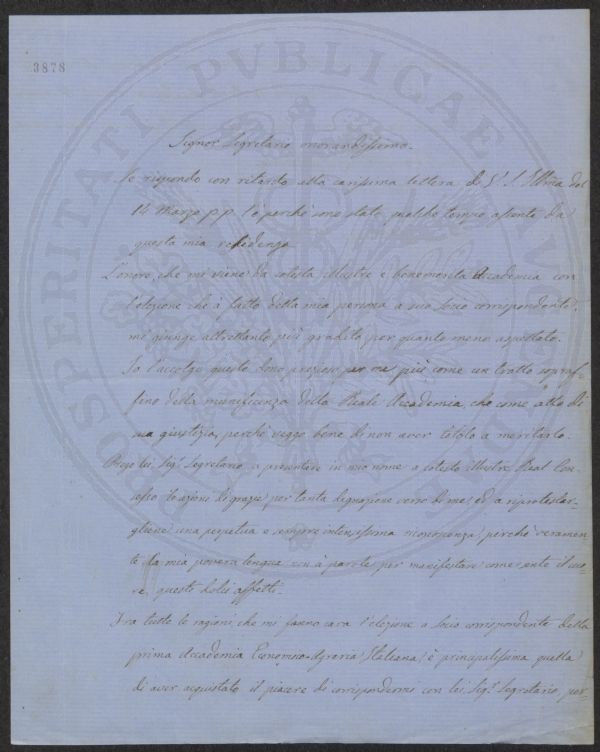 3878
PROSPERITATI PUBLICAE
Signor Segretario onorandissimo.
Se rispondo con ritardo alla carissima lettera di V. S. Illma del
14 Marzo p.p. è perchè sono stato qualche tempo assente da
questa mia residenza.
L'onore che mi viene da cotesta illustre e benemerita Accademia con
l'elezione che à fatto della mia persona a suo Socio corrispondente
mi giunge altrettanto più gradito, per quanto meno aspettato.
Io l'accolgo questo dono prezioso per me più come un tratto sopraf-
fino della munificenza della Reale Accademia, che come atto di
sua giustizia, perchè veggo bene di non aver titolo a meritarlo.
Prego lei Sigr. Segretario a presentare in mio nome a cotesto illustre Real Con-
sesso le azioni di grazie per tanta degnazione verso di me, ed a riprotestar-
gliene una perpetua e sempre intensissima riconoscenza, perchè veramen-
te la mia povera lingua non à parole per manifestare come sente il cuo-
re questi dolci affetti.
Fra tutte le ragioni che mi fanno cara l'elezione a Socio corrispondente della
prima Accademia Economico-Agraria Italiana, è principalissima quella
di aver acquistato il piacere di corrispondermi con lei Sigr. Segretario, per-